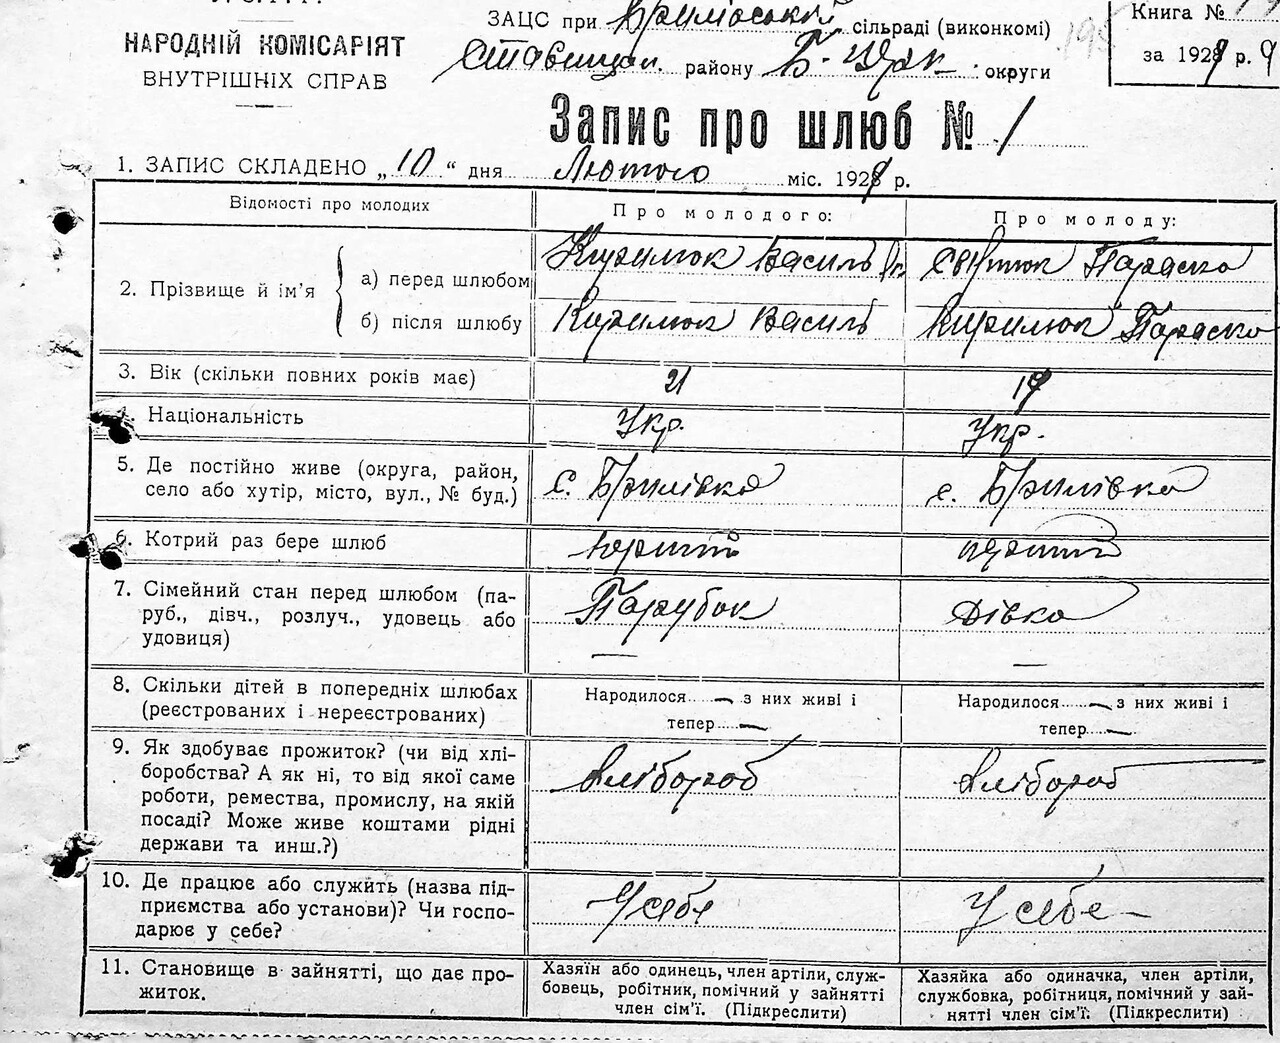 НАРОДНІЙ КОМІСАРІЯТ
ВНУТРІШНІХ СПРАВ
ЗАЦС при сільраді (виконкомі)
району Б-Церк. округи
Книга №
за 1929 р.
Запис про шлюб № 1
1. ЗАПИС СКЛАДЕНО „10“ дня Лютого міс. 1929 р.
Відомості про молодих
Про молодого:
Про молоду:
2. Прізвище й ім’я
а) перед шлюбом
Кирилюк Василь
Параска
б) після шлюбу
Кирилюк Василь
Кирилюк Параска
3. Вік (скільки повних років має)
21
4. Національність
Укр.
Укр.
5. Де постійно живе (округа, район,
село або хутір, місто, вул., № буд.)
с. Брилівка
с. Брилівка
6. Котрий раз бере шлюб
перший
перший
7. Сімейний стан перед шлюбом (па-
руб., дівч., розлуч., удовець або
удовиця)
Парубок
Дівка
8. Скільки дітей в попередніх шлюбах
(реєстрованих і нереєстрованих)
Народилося — з них живі і
тепер —
Народилося — з них живі і
тепер —
9. Як здобуває прожиток? (чи від хлі-
боробства? А як ні, то від якої саме
роботи, ремества, промислу, на якій
посаді? Може живе коштами рідні
держави та инш.?)
хлібороб
хлібороб
10. Де працює або служить (назва під-
приємства або установи)? Чи госпо-
дарює у себе?
У себе
У себе
11. Становище в зайнятті, що дає про-
житок.
Хазяїн або одинець, член артілі, служ-
бовець, робітник, помічний у зайнятті
член сім’ї. (Підкреслити)
Хазяйка або одиначка, член артілі,
службовка, робітниця, помічний у зай-
нятті член сім’ї: (Підкреслити)